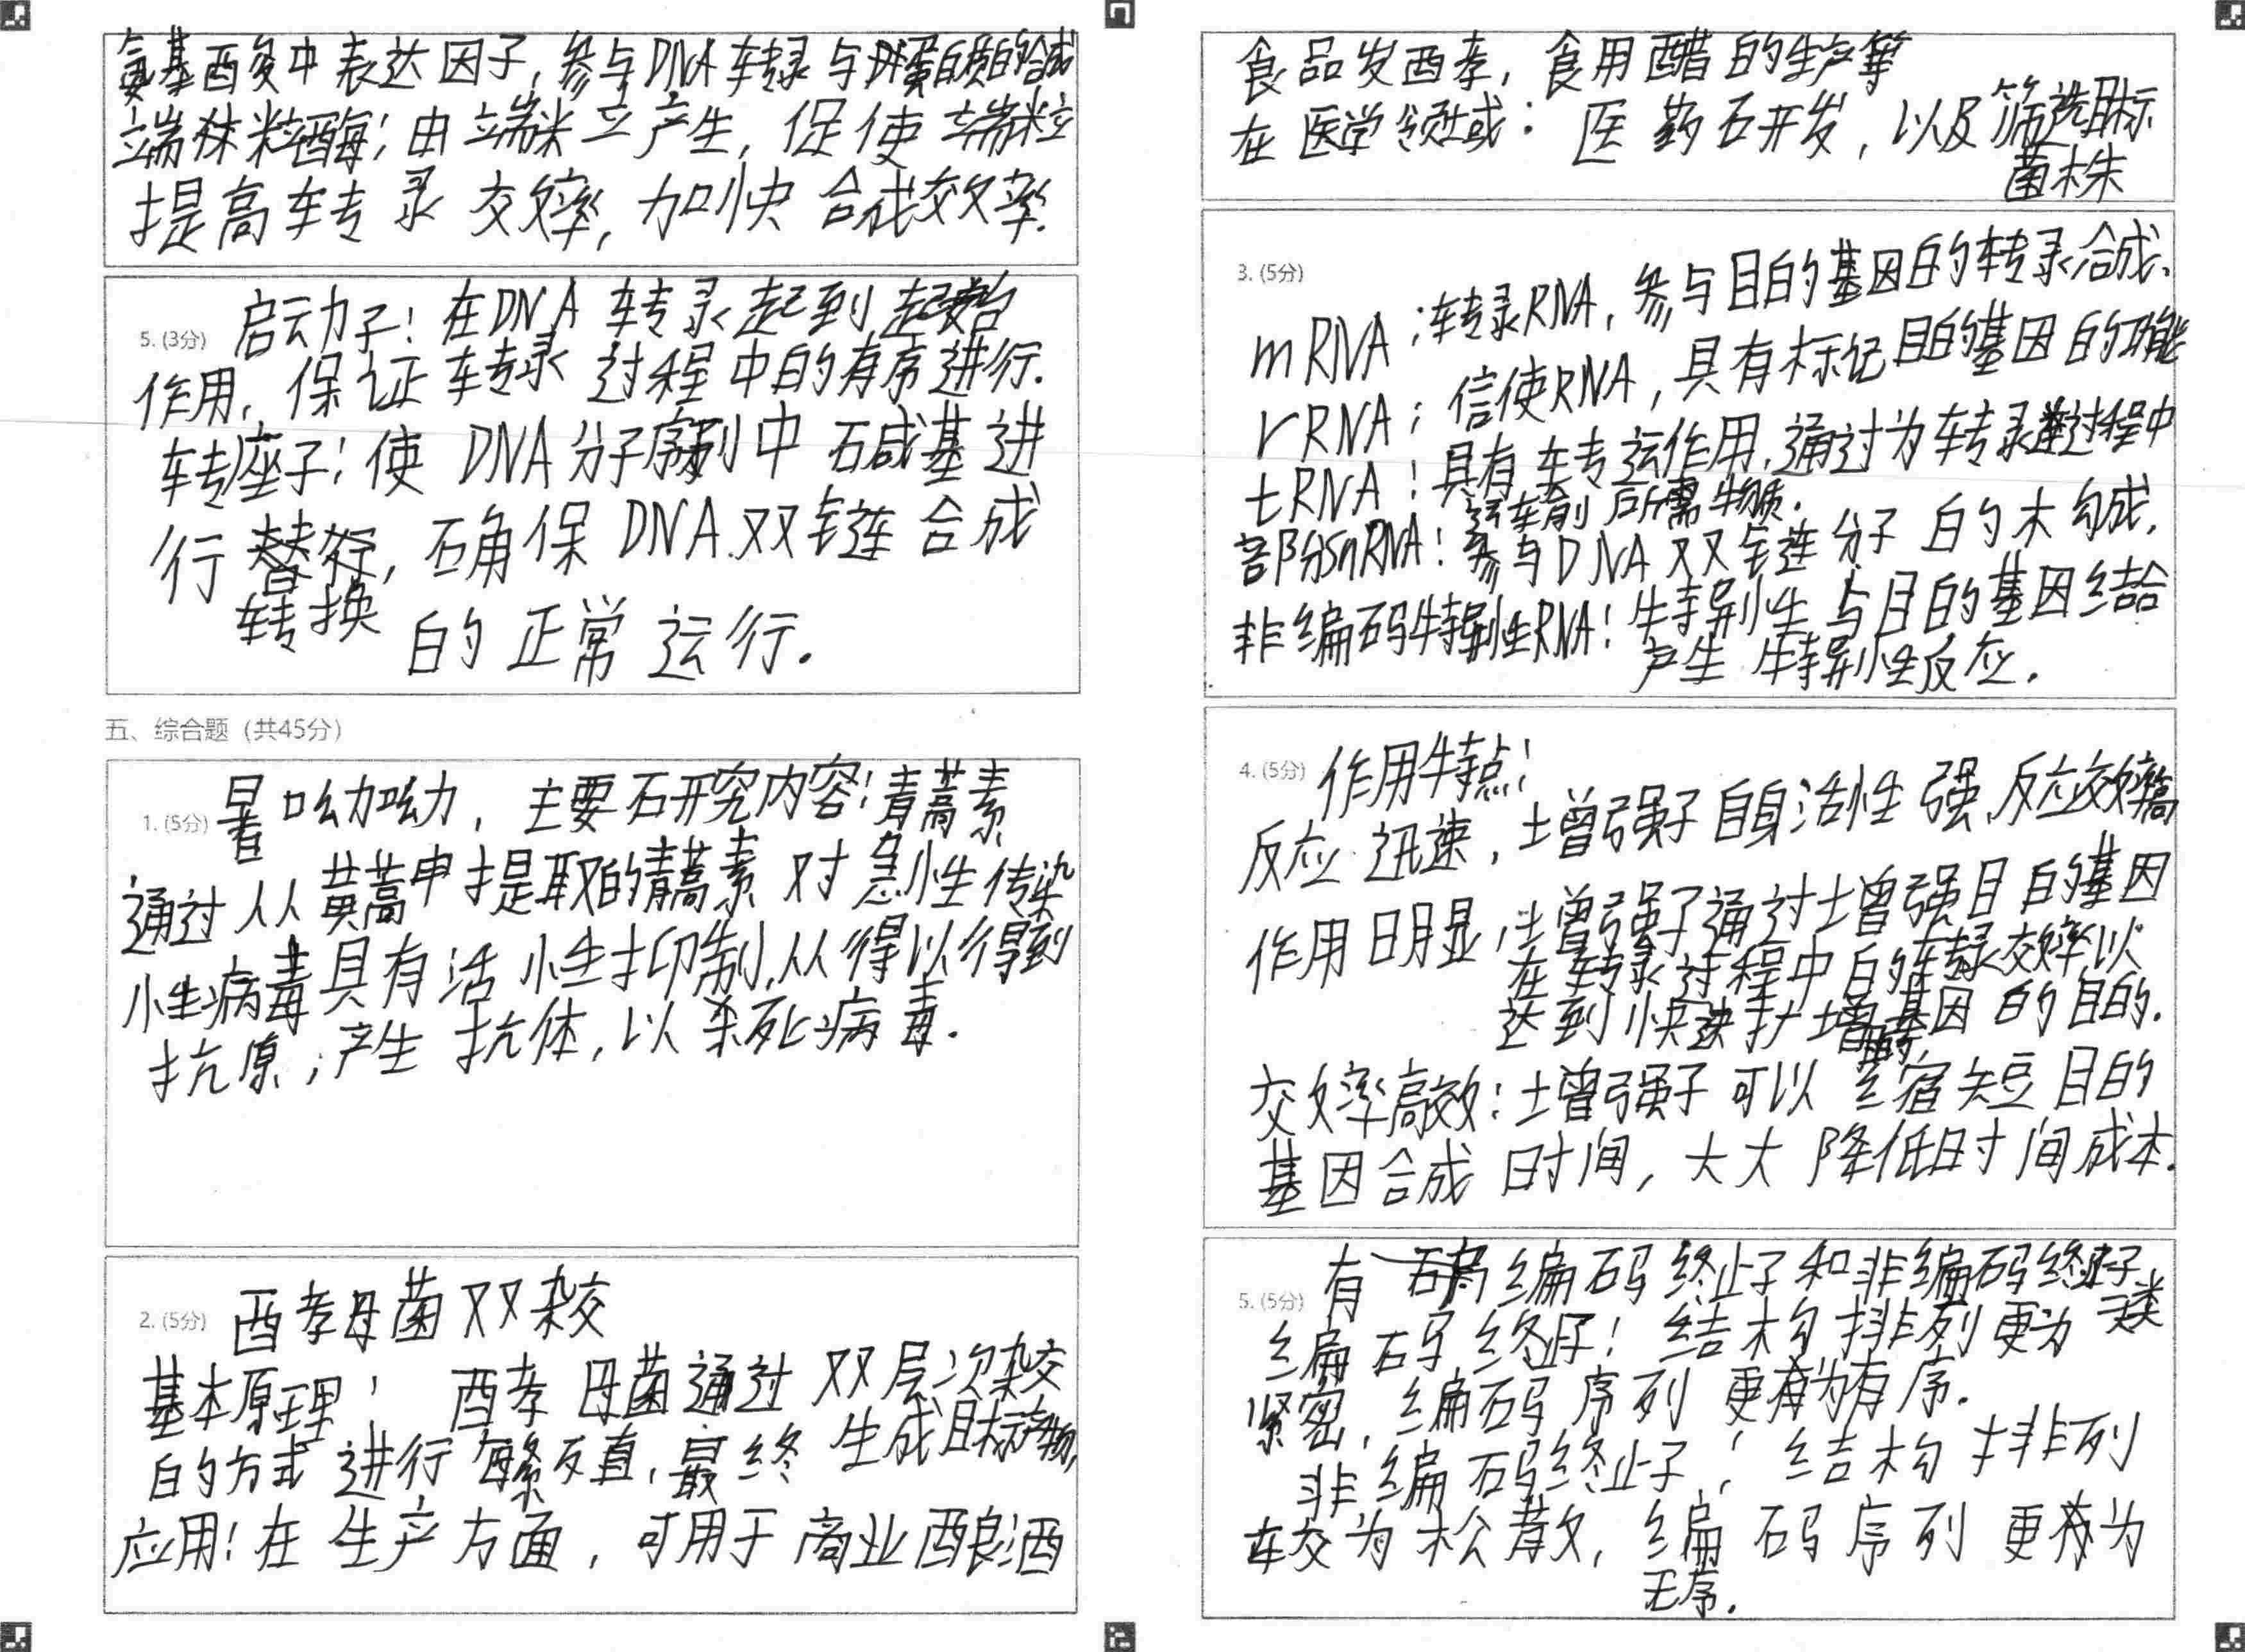 氨基酸中表达因子,参与DNA转录与蛋白质的合成
端粒酶:由端粒产生,促使端粒
提高转录效率,加快合成效率.
5. (3分) 启动子:在DNA转录起到起始
作用,保证转录过程中的有序进行.
转座子:使DNA分子序列中碱基进
行替换,确保DNA双链合成
转换 的正常运行.
五、综合题(共45分)
1. (5分) 屠呦呦,主要研究内容:青蒿素
通过从黄蒿中提取的青蒿素对急性传染
性病毒具有活性抑制,从得以得到
抗原,产生抗体,以杀死病毒.
2. (5分) 酵母菌双杂交
基本原理:酵母菌通过双层次杂交
的方式进行繁殖,最终生成目标产物,
应用:在生产方面,可用于商业酿酒
食品发酵,食用醋的生产等
在医学领域:医药研发,以及筛选目标
菌株
3. (5分)
mRNA:转录RNA,参与目的基因的转录合成.
rRNA:信使RNA,具有标记目的基因的功能
tRNA:具有转运作用,通过为转录过程中
运转前后所需物质.
部分snRNA:参与DNA双链分子的构成.
非编码特异性RNA:特异性与目的基因结合
产生特异性反应.
4. (5分) 作用特点:
反应迅速,增强子自身活性强,反应效率高
作用明显,增强子通过增强目的基因
在转录过程中的转录效率以
达到快速扩增基因的目的.
效率高效:增强子可以缩短目的
基因合成时间,大大降低时间成本.
5. (5分) 有编码终止子和非编码终止子
二类
编码终止子:结构排列更为
紧密,编码序列更为有序.
非编码终止子:结构排列
较为松散,编码序列更为
无序.